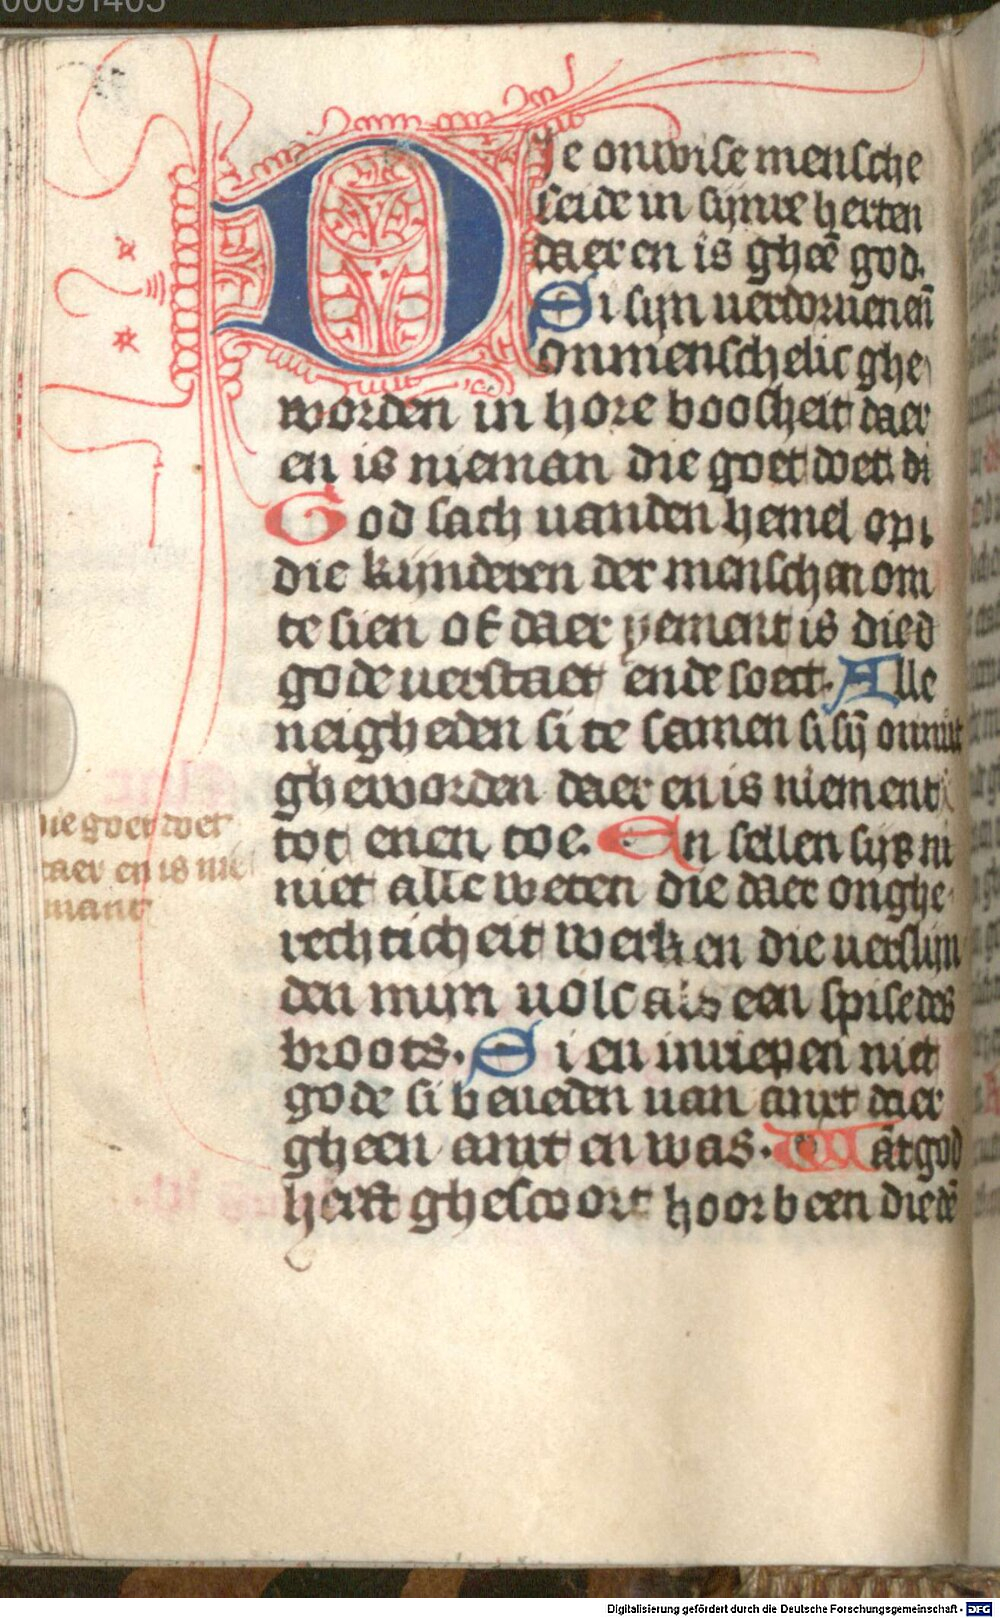 00091405
Die onwise mensche
seide in sijnre herten
daer en is gheē god.
Si sijn verdorven eñ
onmenschelic ghe
worden in hore boosheit daer
en is nieman die goet doet. di
God sach vanden hemel op
die kijnderen der menschen om
te sien of daer yement is die
gode verstaet ende soect. Alle
neigheden si te samen si sij̄ onnut
gheworden daer en is niement
tot enen toe. En sellen sijs ni
niet alle weten die daer onghe
rechticheit werken die verslyn
den mijn volc als een spise des
broots. Si en inriepen niet
gode si beveden van anxt daer
gheen anxt en was. Wāt god
heeft ghescoort hoor been die dē
die goet doet
daer en is nie
mant
Digitalisierung gefördert durch die Deutsche Forschungsgemeinschaft - DFG